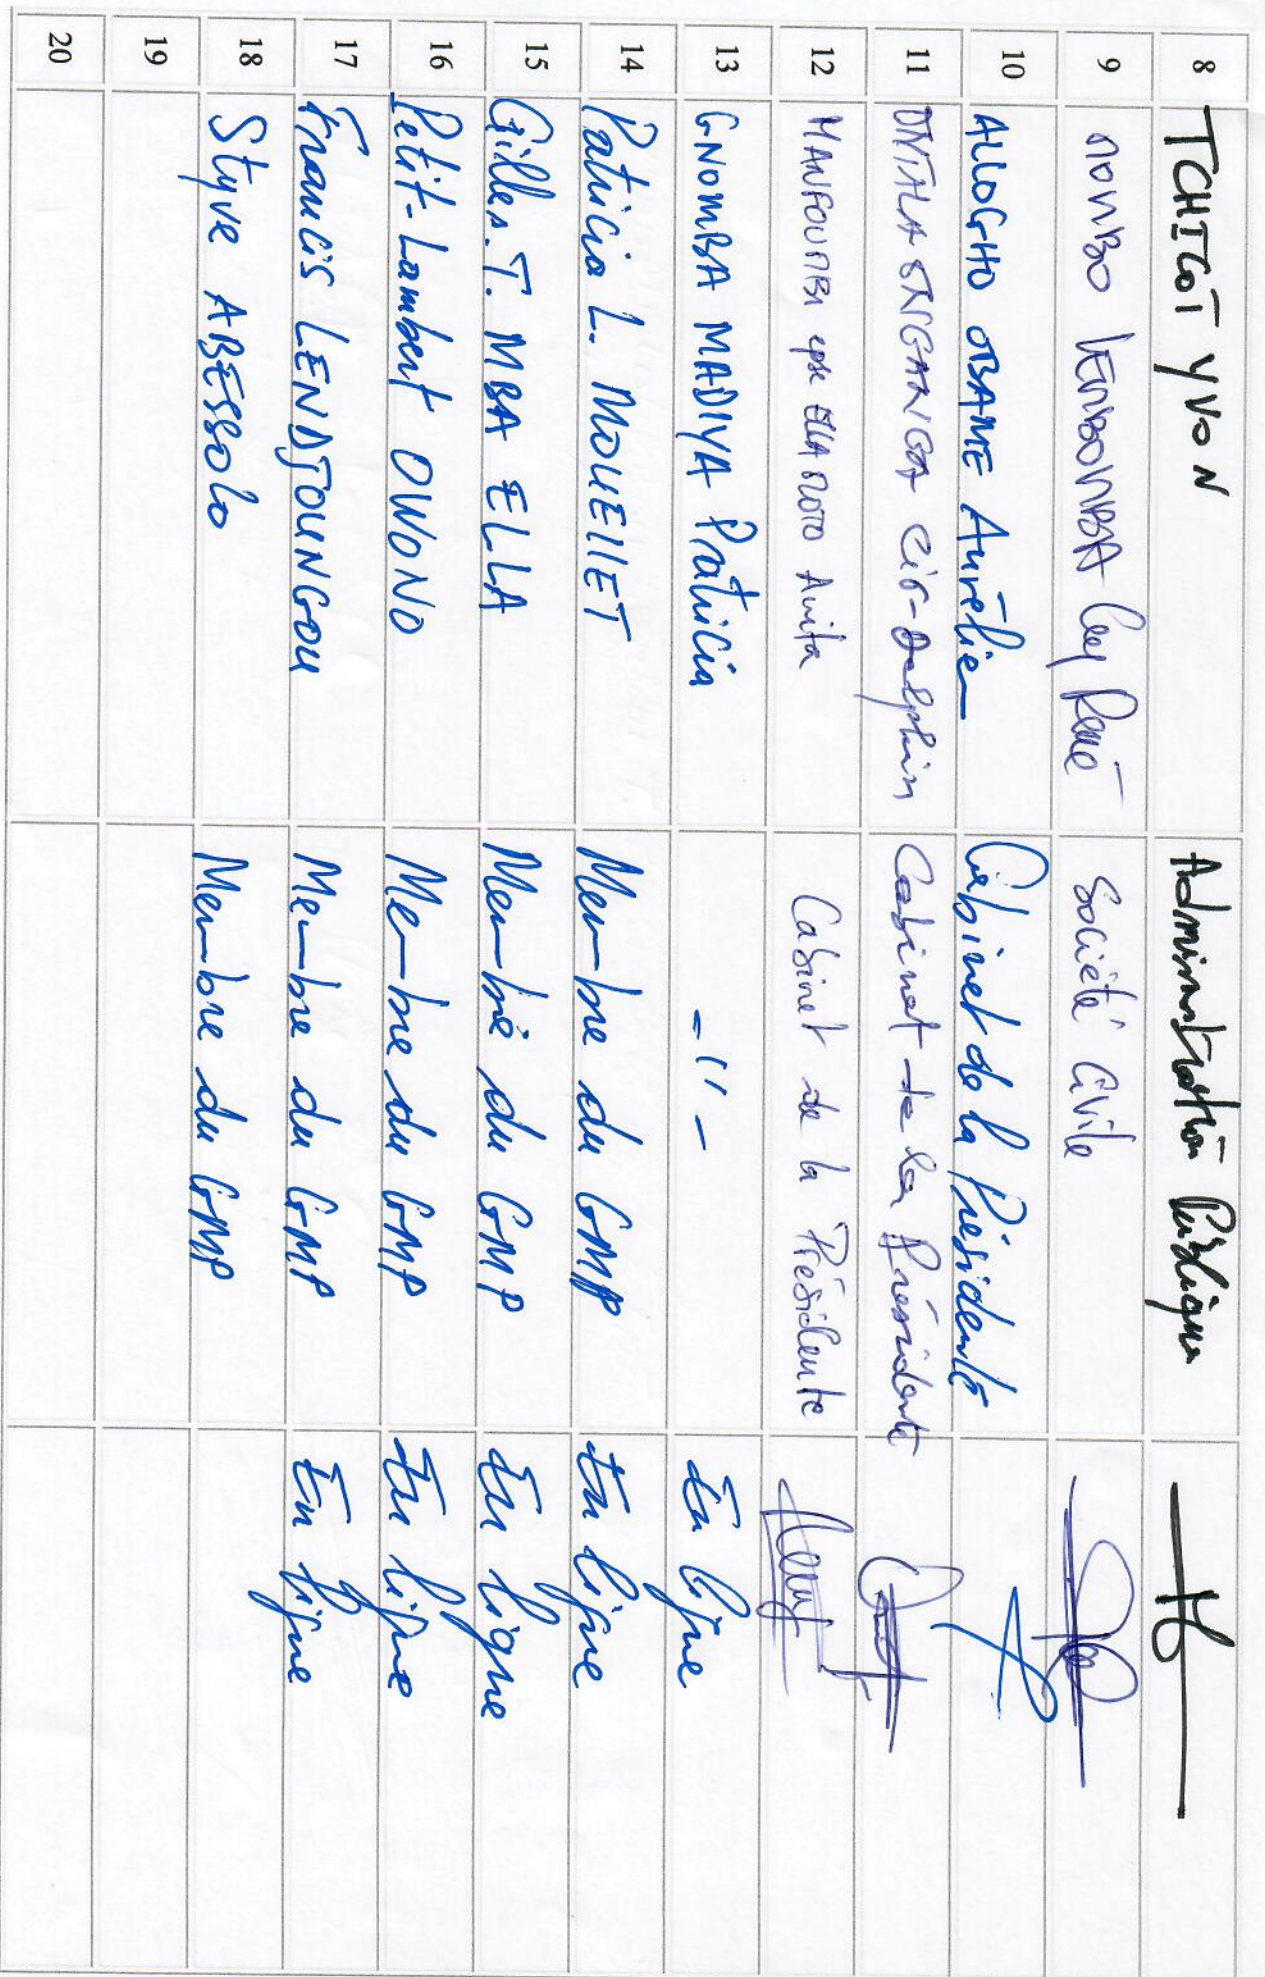 8 TCHIGOT YVON Administration Publique
9 MOMBO LEMBOMBA Guy René Société Civile
10 ALLOGHO OBAME Aurélie Cabinet de la Présidente
11 Cabinet de la Présidente
12 MANFOUMBI epse ELLA MOTO Anita Cabinet de la Présidente
13 GNOMBA MADIYA Patricia - " - En ligne
14 Patricia L. MOUEllET Membre du GMP En ligne
15 Gilles. T. MBA ELLA Membre du GMP En ligne
16 Petit-Lambert OWONO Membre du GMP En ligne
17 Francis LENDJOUNGOU Membre du GMP En ligne
18 Styve ABESSolo Membre du GMP
19
20